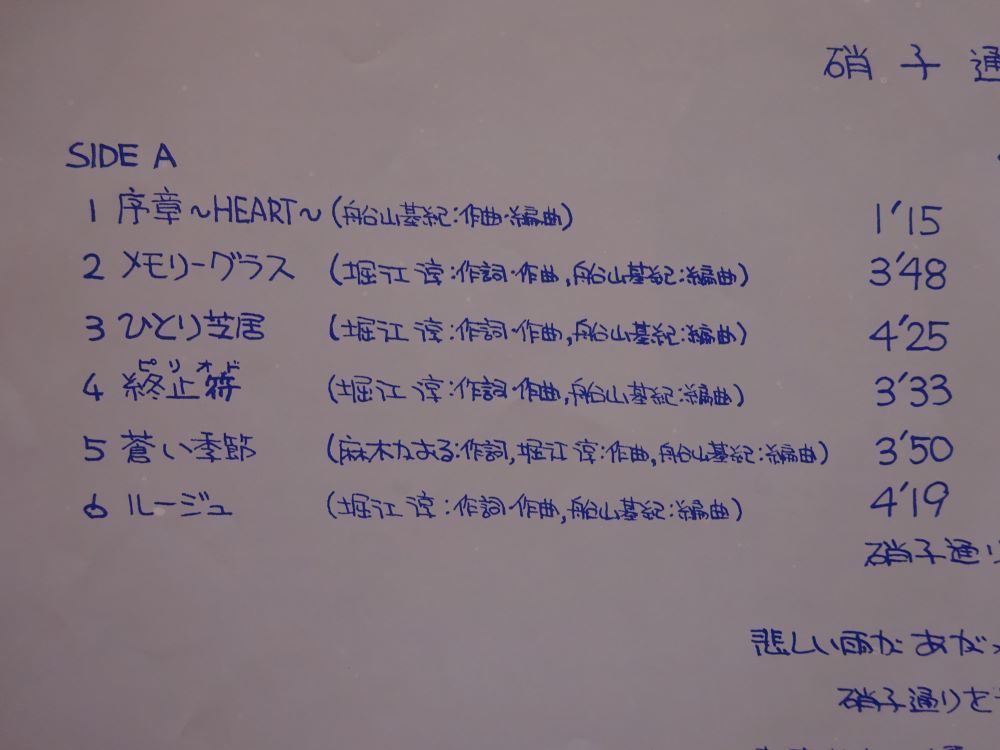 硝子通
SIDE A
1 序章～HEART～ (船山基紀:作曲・編曲) 1'15
2 メモリーグラス (堀江淳:作詞・作曲,船山基紀:編曲) 3'48
3 ひとり芝居 (堀江淳:作詞・作曲,船山基紀:編曲) 4'25
ピリオド
4 終止符 (堀江淳:作詞・作曲,船山基紀:編曲) 3'33
5 蒼い季節 (麻木かおる:作詞,堀江淳:作曲,船山基紀:編曲) 3'50
6 ルージュ (堀江淳:作詞・作曲,船山基紀:編曲) 4'19
硝子通り
悲しい雨があがっ
硝子通りを